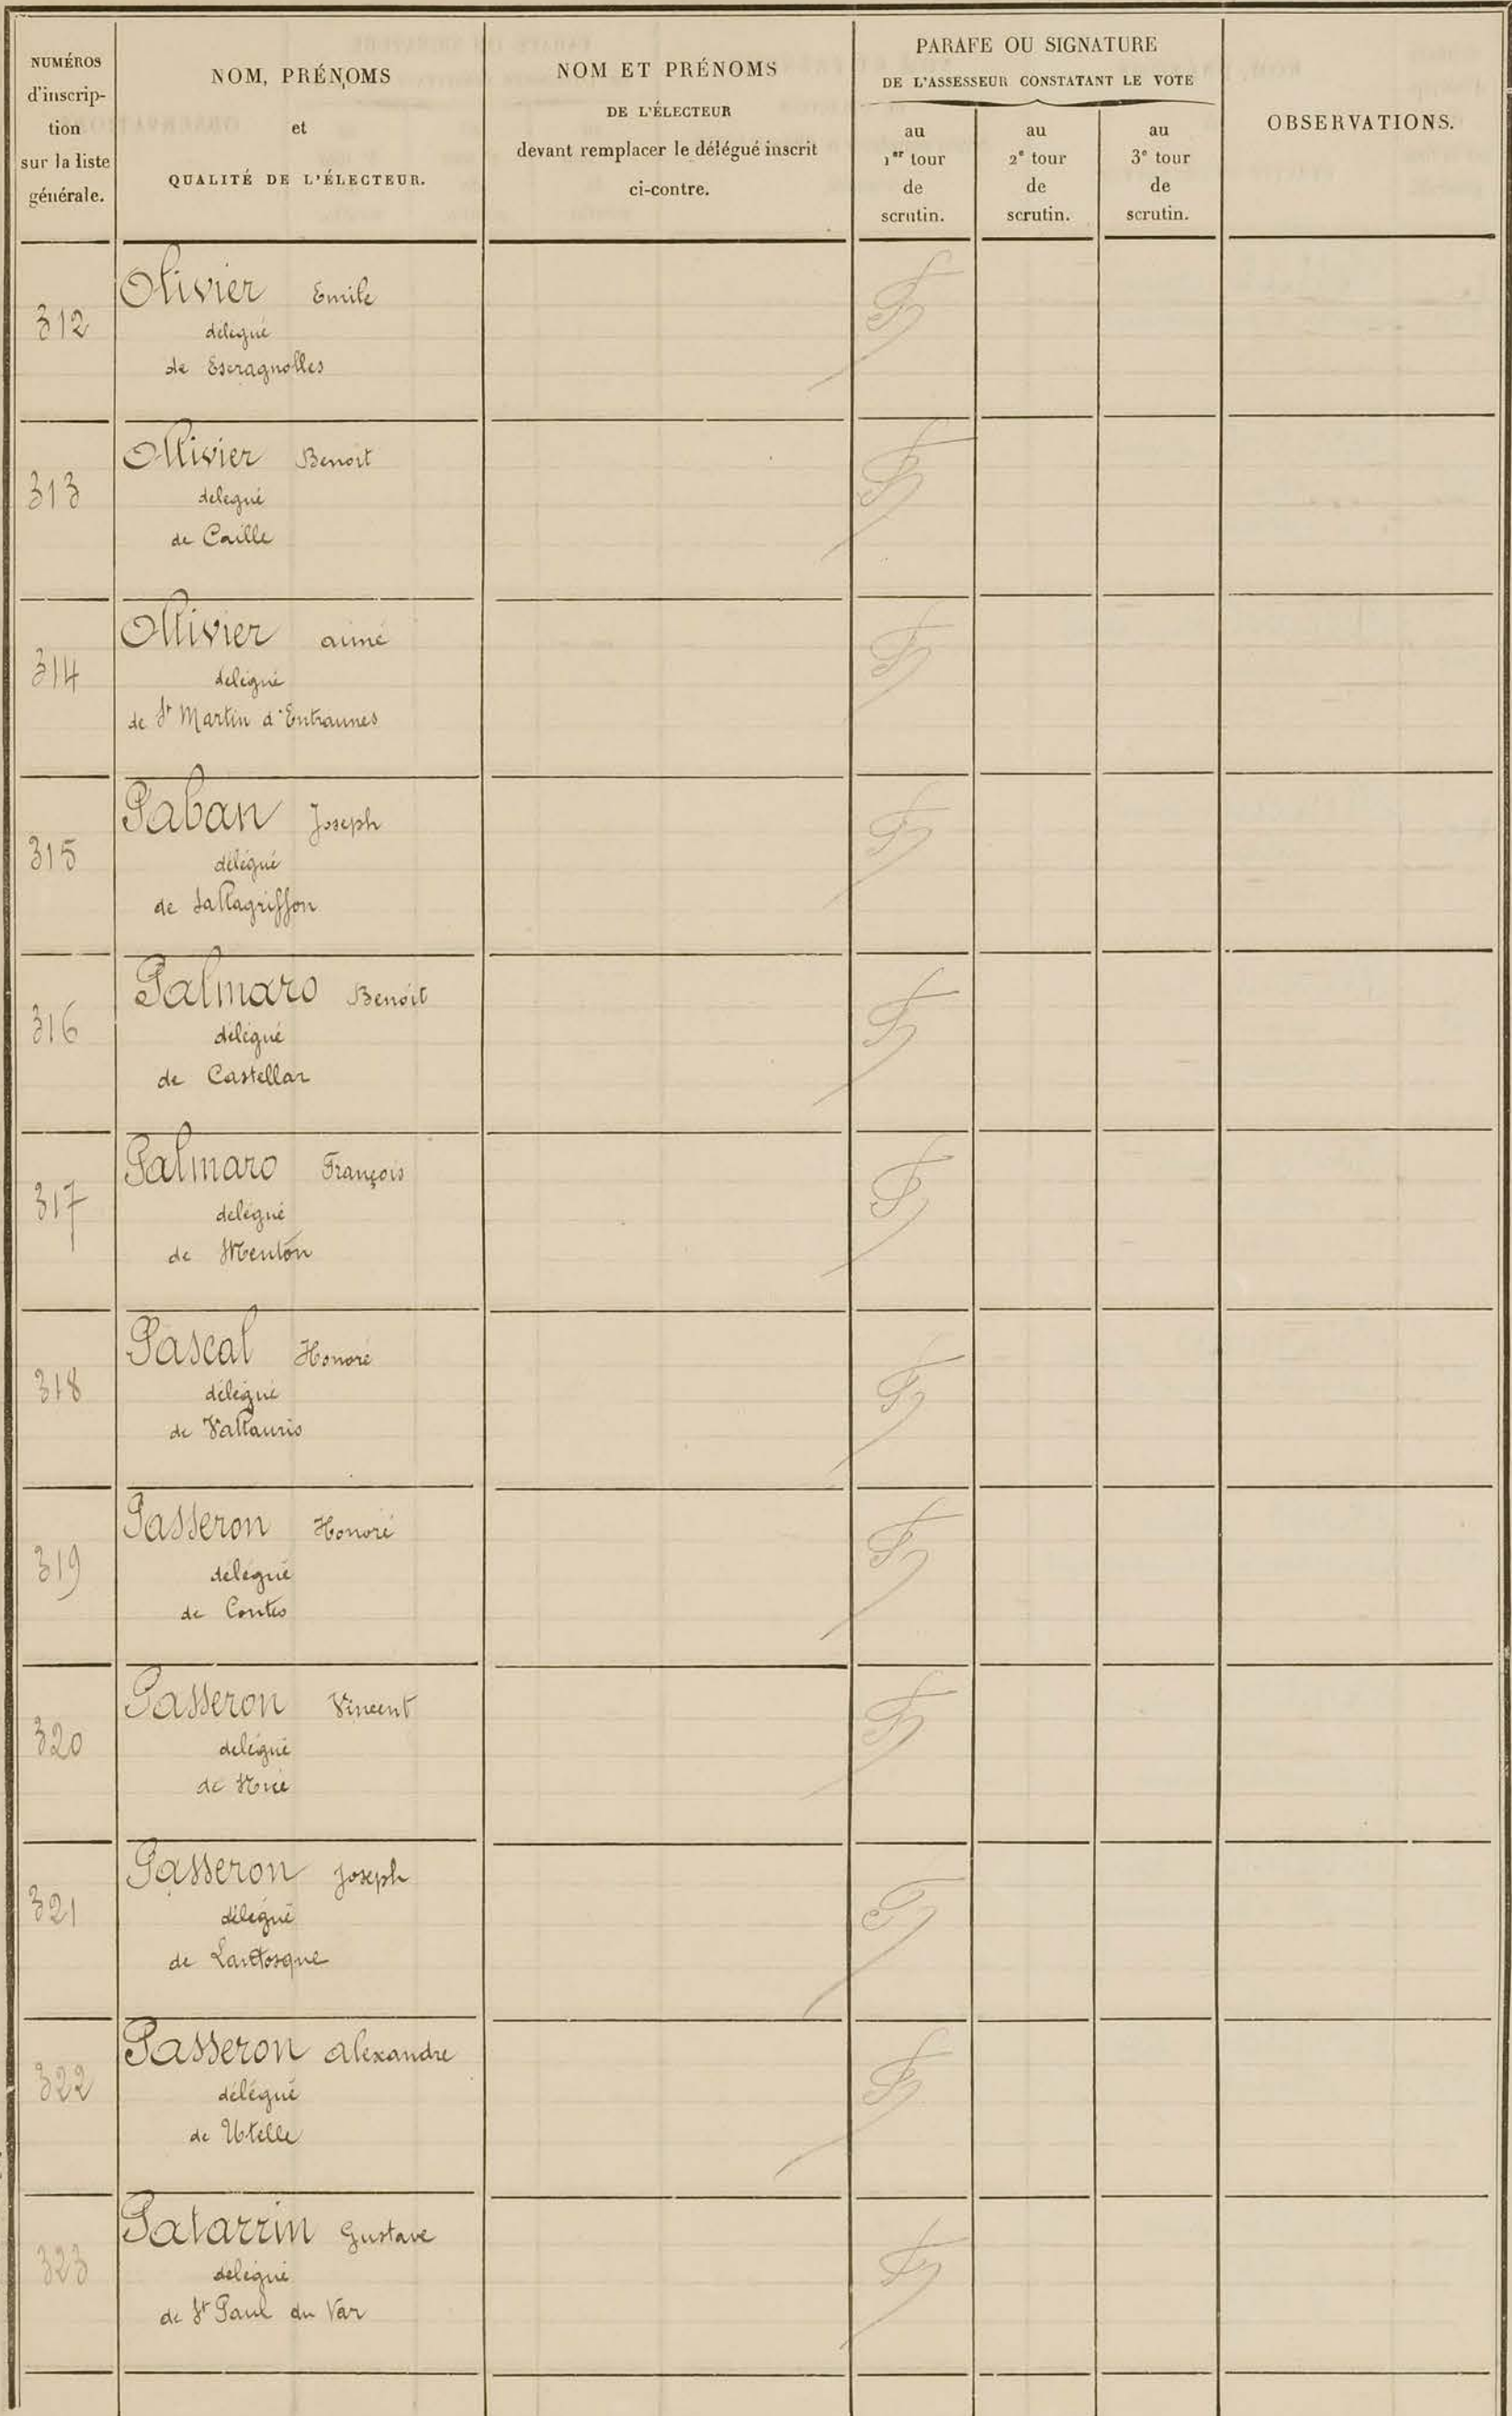 NUMÉROS
d'inscrip-
tion
sur la liste
générale.
NOM, PRÉNOMS
et
QUALITÉ DE L'ÉLECTEUR.
NOM ET PRÉNOMS
DE L'ÉLECTEUR
devant remplacer le délégué inscrit
ci-contre.
PARAFE OU SIGNATURE
DE L'ASSESSEUR CONSTATANT LE VOTE
au
1er tour
de
scrutin.
au
2e tour
de
scrutin.
au
3e tour
de
scrutin.
OBSERVATIONS.
312
Olivier Emile
délégué
de Escragnolles
313
Ollivier Benoit
délégué
de Caille
314
Ollivier aimé
délégué
de St Martin d'Entraunes
315
Paban Joseph
délégué
de Sallagriffon
316
Palmaro Benoit
délégué
de Castellar
317
Palmaro François
délégué
de Menton
318
Pascal Honoré
délégué
de Vallauris
319
Passeron Honoré
délégué
de Contes
320
Passeron Vincent
délégué
de Nice
321
Passeron Joseph
délégué
de Lantosque
322
Passeron alexandre
délégué
de Utelle
323
Patarrin Gustave
délégué
de St Paul du Var